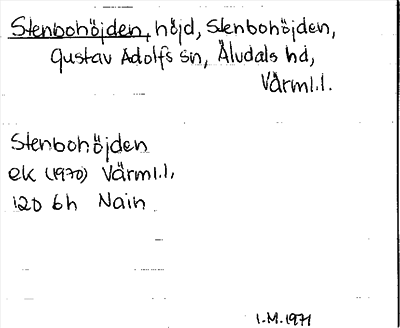 Stenbohöjden, höjd, Stenbohöjden,
Gustav Adolfs sn, Älvdals hd,
Värml.l.
Stenbohöjden
ek (1970) Värml.l,
12D 6h Nain
I.M. 1971